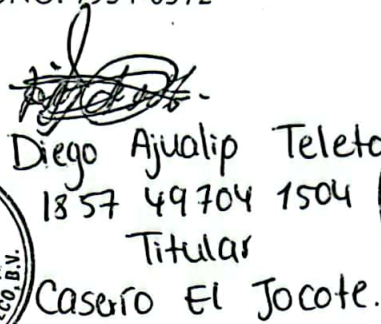 Diego Ajualip Teleto
1857 49704 1504
Titular
Caserío El Jocote.
CO, B.V.